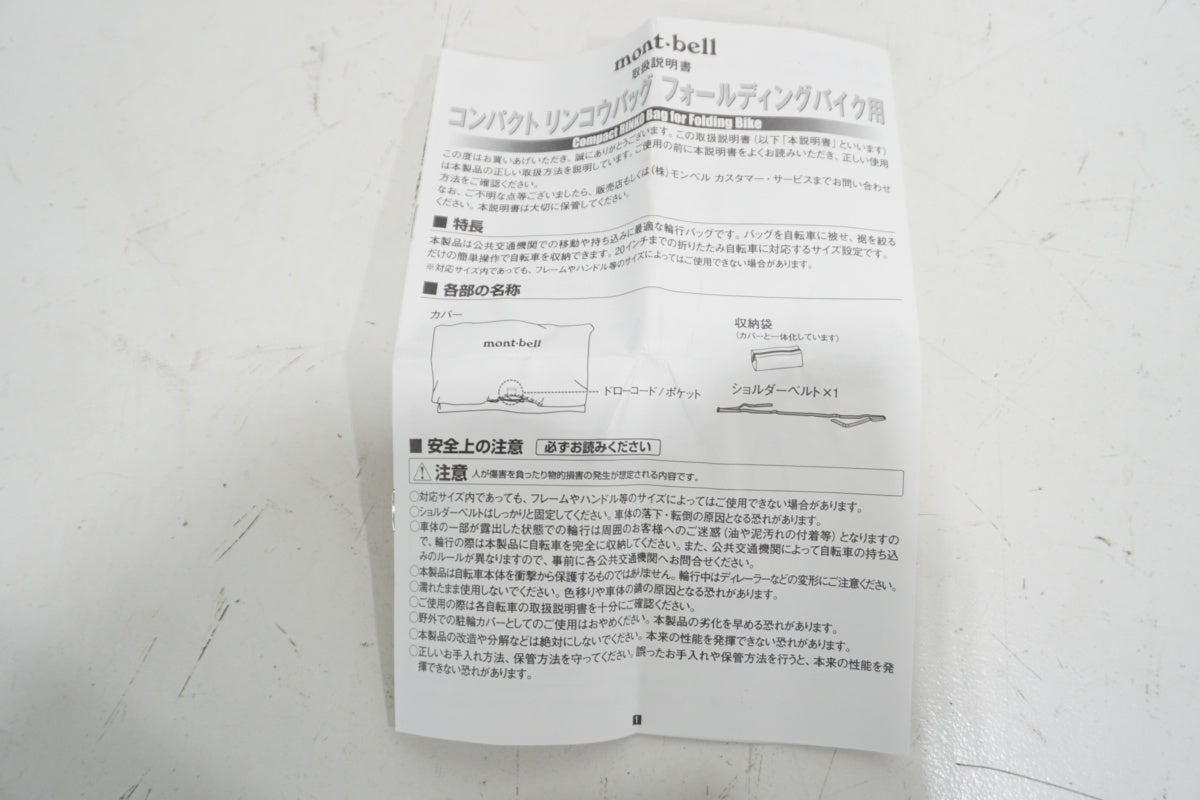 mont·bell
取扱説明書
コンパクト リンコウバッグ フォールディングバイク用
Compact RINKO Bag for Folding Bike
この度はお買いあげいただき、誠にありがとうございます。この取扱説明書(以下「本説明書」といいます)
は本製品の正しい取扱方法を説明しています。ご使用の前に本説明書をよくお読みいただき、正しい使用
方法をご確認ください。
なお、ご不明な点等ございましたら、販売店もしくは(株)モンベル カスタマー・サービスまでお問い合わせ
ください。本説明書は大切に保管してください。
■ 特長
本製品は公共交通機関での移動や持ち込みに最適な輪行バッグです。バッグを自転車に被せ、裾を絞る
だけの簡単操作で自転車を収納できます。20インチまでの折りたたみ自転車に対応するサイズ設定です。
※対応サイズ内であっても、フレームやハンドル等のサイズによってはご使用できない場合があります。
■ 各部の名称
カバー
mont·bell
ドローコード/ポケット
収納袋
(カバーと一体化しています)
ショルダーベルト×1
■ 安全上の注意 必ずお読みください
注意 人が傷害を負ったり物的損害の発生が想定される内容です。
○対応サイズ内であっても、フレームやハンドル等のサイズによってはご使用できない場合があります。
○ショルダーベルトはしっかりと固定してください。車体の落下・転倒の原因となる恐れがあります。
○車体の一部が露出した状態での輪行は周囲のお客様へのご迷惑(油や泥汚れの付着等)となりますの
で、輪行の際は本製品に自転車を完全に収納してください。また、公共交通機関によって自転車の持ち込
みのルールが異なりますので、事前に各公共交通機関へお問合せください。
○本製品は自転車本体を衝撃から保護するものではありません。輪行中はディレーラーなどの変形にご注意ください。
○濡れたまま使用しないでください。色移りや車体の錆の原因となる恐れがあります。
○ご使用の際は各自転車の取扱説明書を十分にご確認ください。
○野外での駐輪カバーとしてのご使用はおやめください。本製品の劣化を早める恐れがあります。
○本製品の改造や分解などは絶対にしないでください。本来の性能を発揮できない恐れがあります。
○正しいお手入れ方法、保管方法を守ってください。誤ったお手入れや保管方法を行うと、本来の性能を発
揮できない恐れがあります。
1